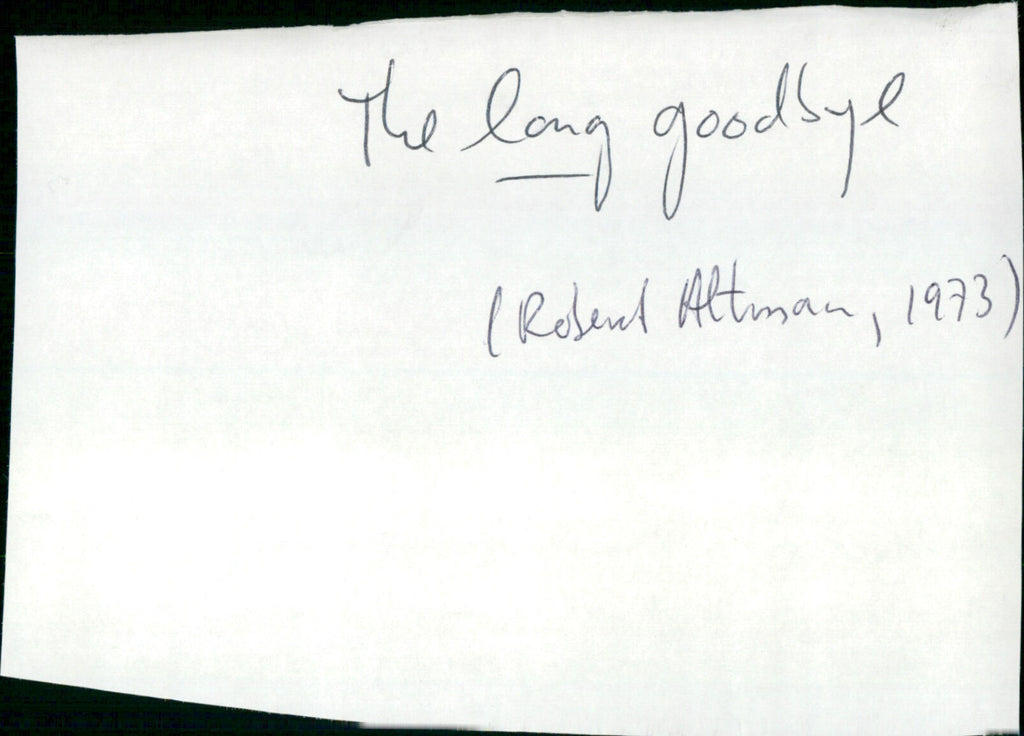 The long goodbye
(Robert Altman, 1973)